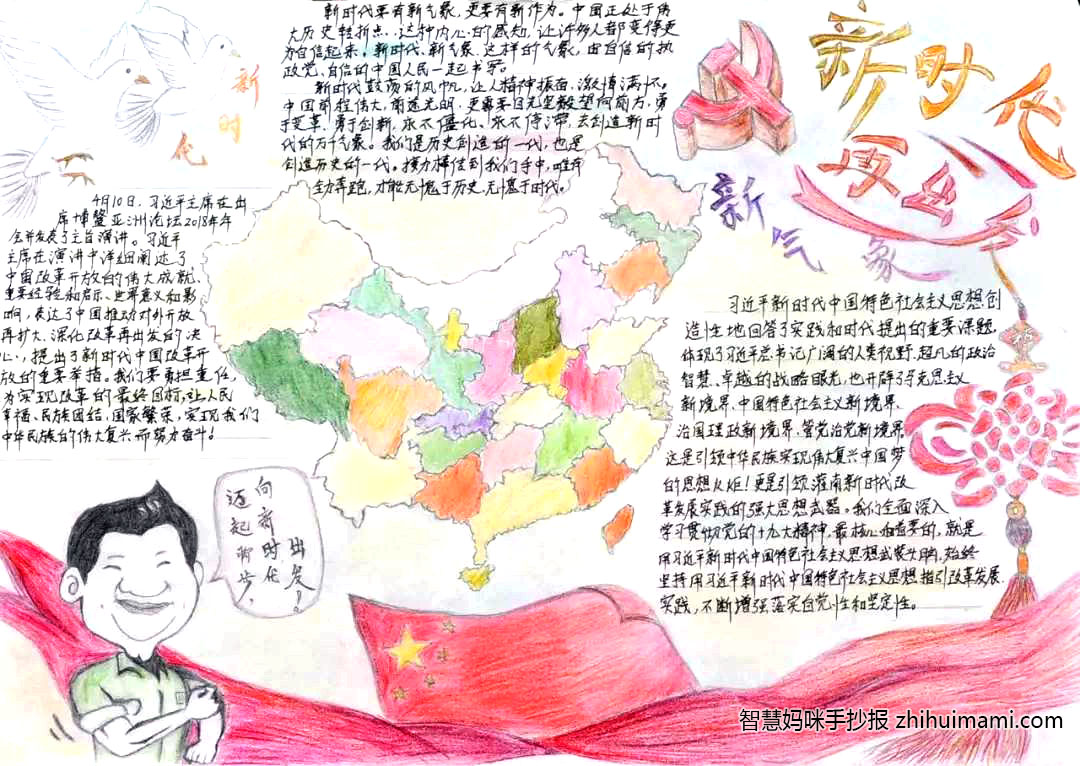 新时代
再出
新气象
新时代
新时代要有新气象，更要有新作为。中国正处于
大历史转折点，这种内心的感知，让许多人都变得更
为自信起来。新时代、新气象，这样的气象，由自信的执
政党、自信的中国人民一起书写。
新时代鼓荡的风帆，让人精神振奋、激情满怀。
中国前程伟大，前途光明，更需要目光坚毅望向前方，勇
于变革，勇于创新，永不僵化、永不停滞，去创造新时
代的万千气象。我们是历史创造的一代，也是
创造历史的一代。接力棒传到我们手中，唯有
全力奔跑，才能无愧于历史，无愧于时代。
4月10日，习近平主席在出
席博鳌亚洲论坛2018年年
会并发表了主旨演讲。习近平
主席在演讲中详细阐述了
中国改革开放的伟大成就、
重要经验和启示、世界意义和影
响，表达了中国推动对外开放
再扩大、深化改革再出发的决
心，提出了新时代中国改革开
放的重要举措。我们要勇担重任，
为实现改革的最终目标，让人民
幸福、民族团结、国家繁荣，实现我们
中华民族的伟大复兴而努力奋斗！
习近平新时代中国特色社会主义思想创
造性地回答了实践和时代提出的重要课题，
体现了习近平总书记广阔的人类视野、超凡的政治
智慧、卓越的战略眼光，也开辟了马克思主义
新境界、中国特色社会主义新境界、
治国理政新境界、管党治党新境界。
这是引领中华民族实现伟大复兴中国梦
的思想火炬！更是引领灌南新时代改
革发展实践的强大思想武器。我们全面深入
学习贯彻党的十九大精神，最核心、最首要的，就是
用习近平新时代中国特色社会主义思想武装头脑，始终
坚持用习近平新时代中国特色社会主义思想指引改革发展
实践，不断增强落实自觉性和坚定性。
向新时代出发！
迈起脚步，
智慧妈咪手抄报 zhihuimami.com